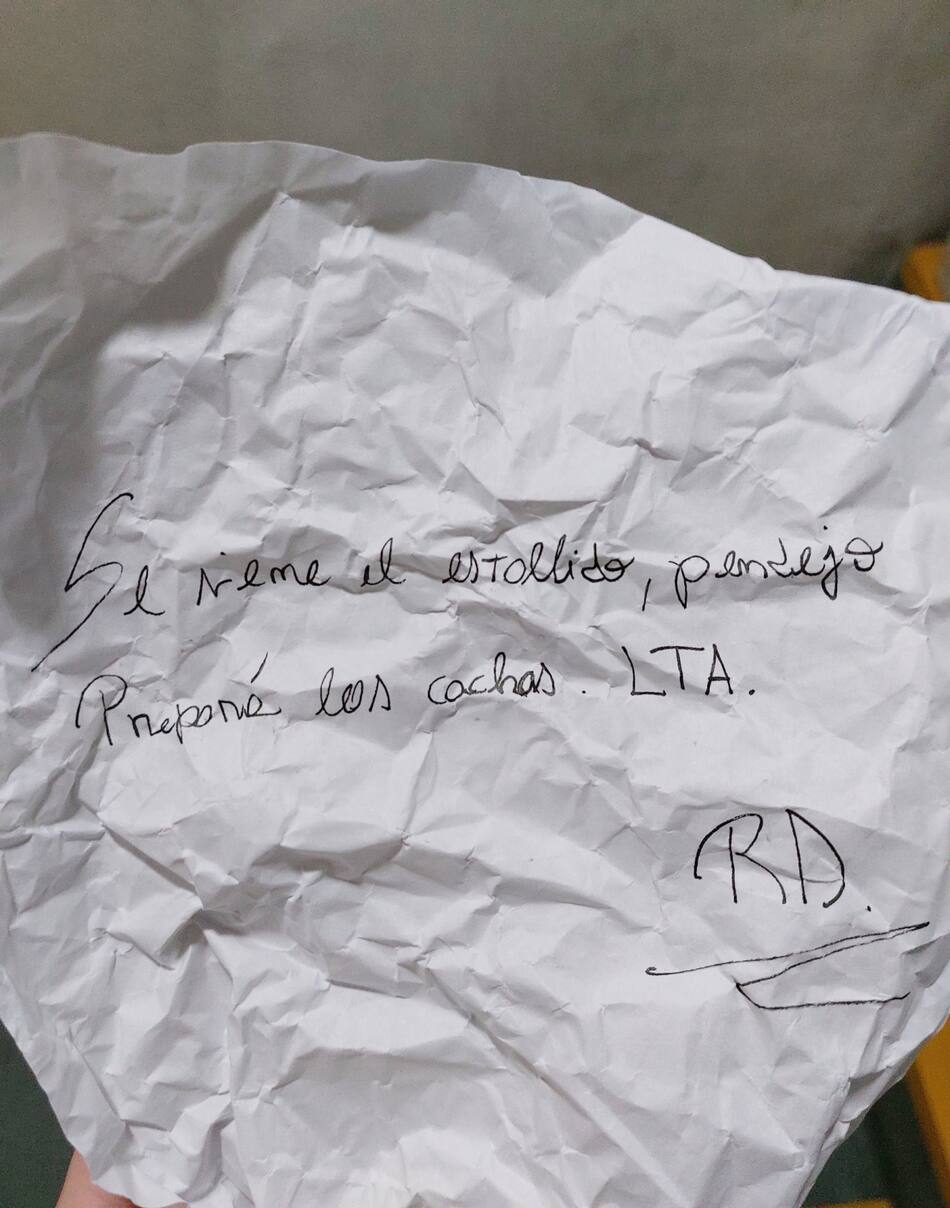 Se viene el estallido, pendejo
Prepará las cachas. LTA.
RA.